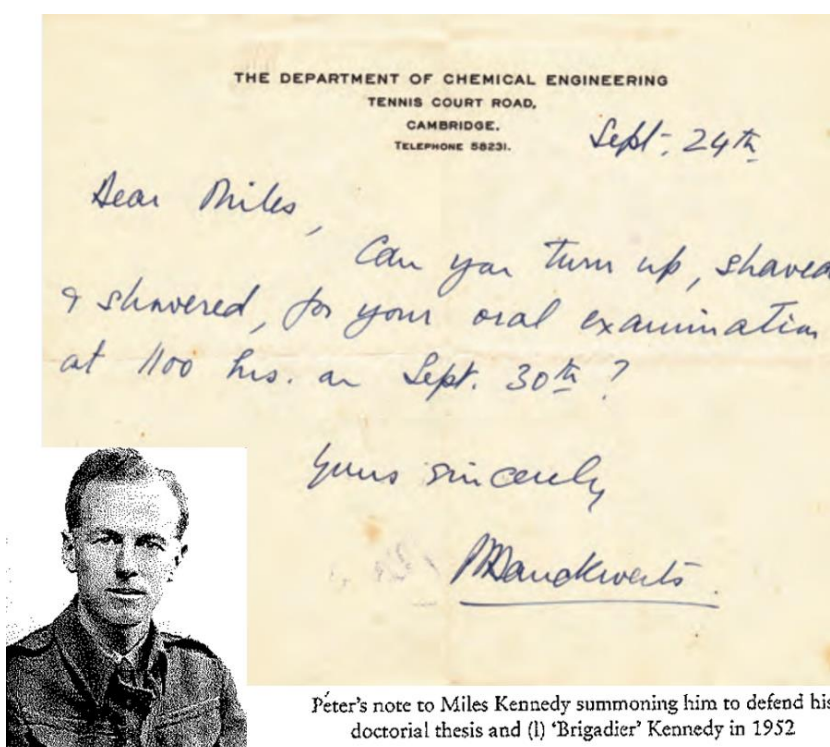 THE DEPARTMENT OF CHEMICAL ENGINEERING
TENNIS COURT ROAD,
CAMBRIDGE.
TELEPHONE 58231.
Sept. 24th
Dear Miles,
Can you turn up, shaved
& showered, for your oral examination
at 1100 hrs. on Sept. 30th?
Yours sincerely
PVDanckwerts.
Péter's note to Miles Kennedy summoning him to defend his
doctorial thesis and (l) 'Brigadier' Kennedy in 1952